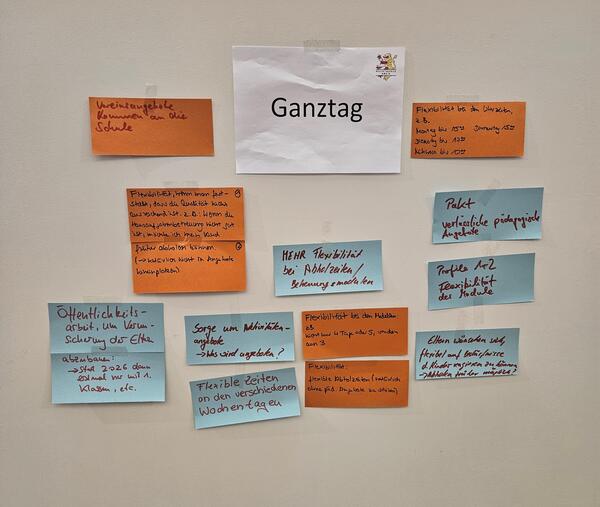 Ganztag
Vereinsangebote
kommen an die
Schule
Flexibilität bei den Uhrzeiten,
z.B.
Montag bis 15 Donnerstag 15
Dienstag bis 17
Mittwoch bis
Flexibilität, wenn man fest-
stellt, dass die Qualität nicht
ausreichend ist. z.B.: Wenn die
Hausaufgabenbetreuung nicht gut
ist, möchte ich mein Kind
früher abholen können.
(→ natürlich nicht in Angebote
hineinplatzen)
Pakt
verlässliche pädagogische
Angebote
MEHR Flexibilität
bei Abholzeiten/
Betreuungsmodulen
Profile 1+2
Flexibilität
der Module
Öffentlichkeits-
arbeit, um Verun-
sicherung der Eltern
abzubauen:
→ Start 2026 dann
erstmal nur mit 1.
Klassen, etc.
Sorge um
angebote
→ Was wird angeboten?
Flexibilität bei den Modulen
z.B.
nur 4 Tage oder 5, sondern
auch 3
Eltern wünschen sich,
flexibel auf Bedürfnisse
d. Kinder reagieren zu können
→ Abholen früher möglich?
Flexible Zeiten
an den verschiedenen
Wochentagen
Flexibilität:
flexible Abholzeiten (natürlich
ohne päd. Angebote zu stören)